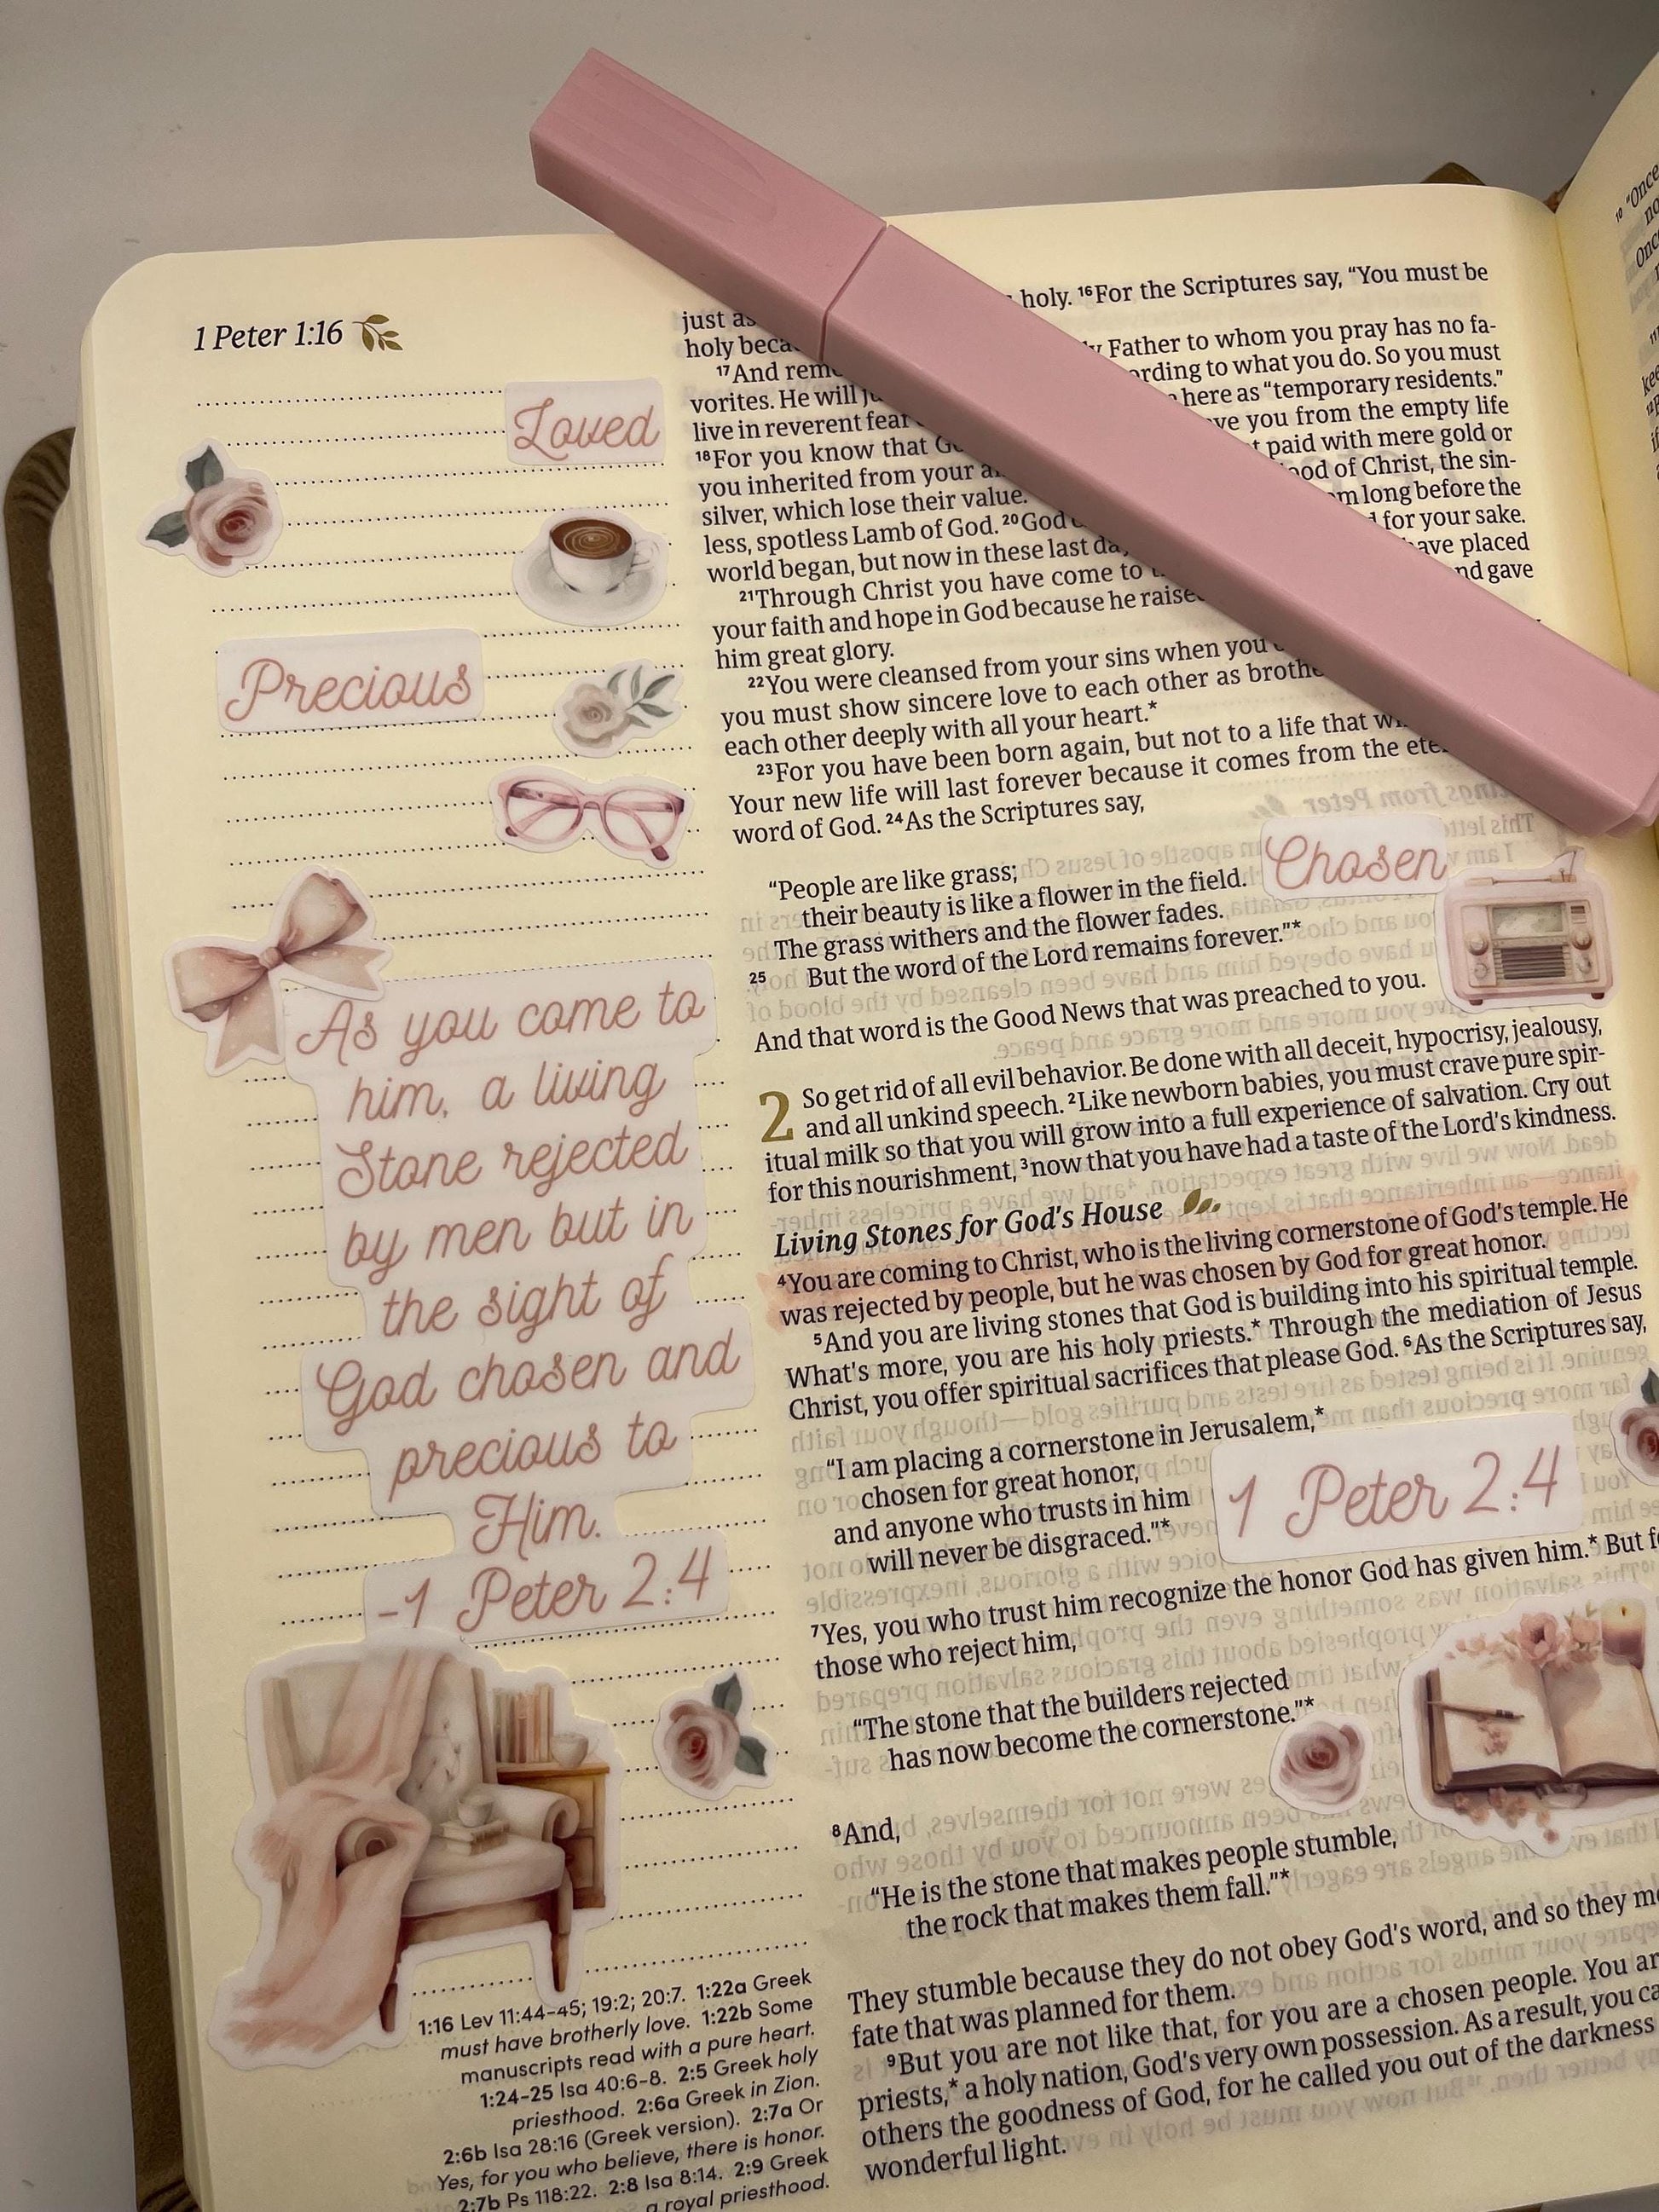 1 Peter 1:16
Loved
Precious
As you come to
him, a living
Stone rejected
by men but in
the sight of
God chosen and
precious to
Him.
-1 Peter 2:4
1:16 Lev 11:44-45; 19:2; 20:7. 1:22a Greek
must have brotherly love. 1:22b Some
manuscripts read with a pure heart.
1:24-25 Isa 40:6-8. 2:5 Greek holy
priesthood. 2:6a Greek in Zion.
2:6b Isa 28:16 (Greek version). 2:7a Or
Yes, for you who believe, there is honor.
2:7b Ps 118:22. 2:8 Isa 8:14. 2:9 Greek
a royal priesthood.
just as holy. 16For the Scriptures say, “You must be
holy
17And Father to whom you pray has no fa-
vorites. He will to what you do. So you must
live in reverent fear here as “temporary residents.”
18For you know that you from the empty life
you inherited from your paid with mere gold or
silver, which lose their value. of Christ, the sin-
less, spotless Lamb of God. 20God long before the
world began, but now in these last for your sake.
21Through Christ you have come to have placed
your faith and hope in God because he and gave
him great glory.
22You were cleansed from your sins when you
you must show sincere love to each other as
each other deeply with all your heart.*
23For you have been born again, but not to a life that
Your new life will last forever because it comes from the
word of God. 24As the Scriptures say,
“People are like grass;
their beauty is like a flower in the field.
The grass withers and the flower fades.
25 But the word of the Lord remains forever.”*
Chosen
And that word is the Good News that was preached to you.
2 So get rid of all evil behavior. Be done with all deceit, hypocrisy, jealousy,
and all unkind speech. 2Like newborn babies, you must crave pure spir-
itual milk so that you will grow into a full experience of salvation. Cry out
for this nourishment, 3now that you have had a taste of the Lord’s kindness.
Living Stones for God’s House
4You are coming to Christ, who is the living cornerstone of God’s temple. He
was rejected by people, but he was chosen by God for great honor.
5And you are living stones that God is building into his spiritual temple.
What’s more, you are his holy priests.* Through the mediation of Jesus
Christ, you offer spiritual sacrifices that please God. 6As the Scriptures say,
“I am placing a cornerstone in Jerusalem,*
chosen for great honor,
and anyone who trusts in him
will never be disgraced.”*
1 Peter 2:4
7Yes, you who trust him recognize the honor God has given him.* But
those who reject him,
“The stone that the builders rejected
has now become the cornerstone.”*
8And,
“He is the stone that makes people stumble,
the rock that makes them fall.”*
They stumble because they do not obey God’s word, and so they
fate that was planned for them.
9But you are not like that, for you are a chosen people. You
priests,* a holy nation, God’s very own possession. As a result, you
others the goodness of God, for he called you out of the darkness
wonderful light.
10 “Once